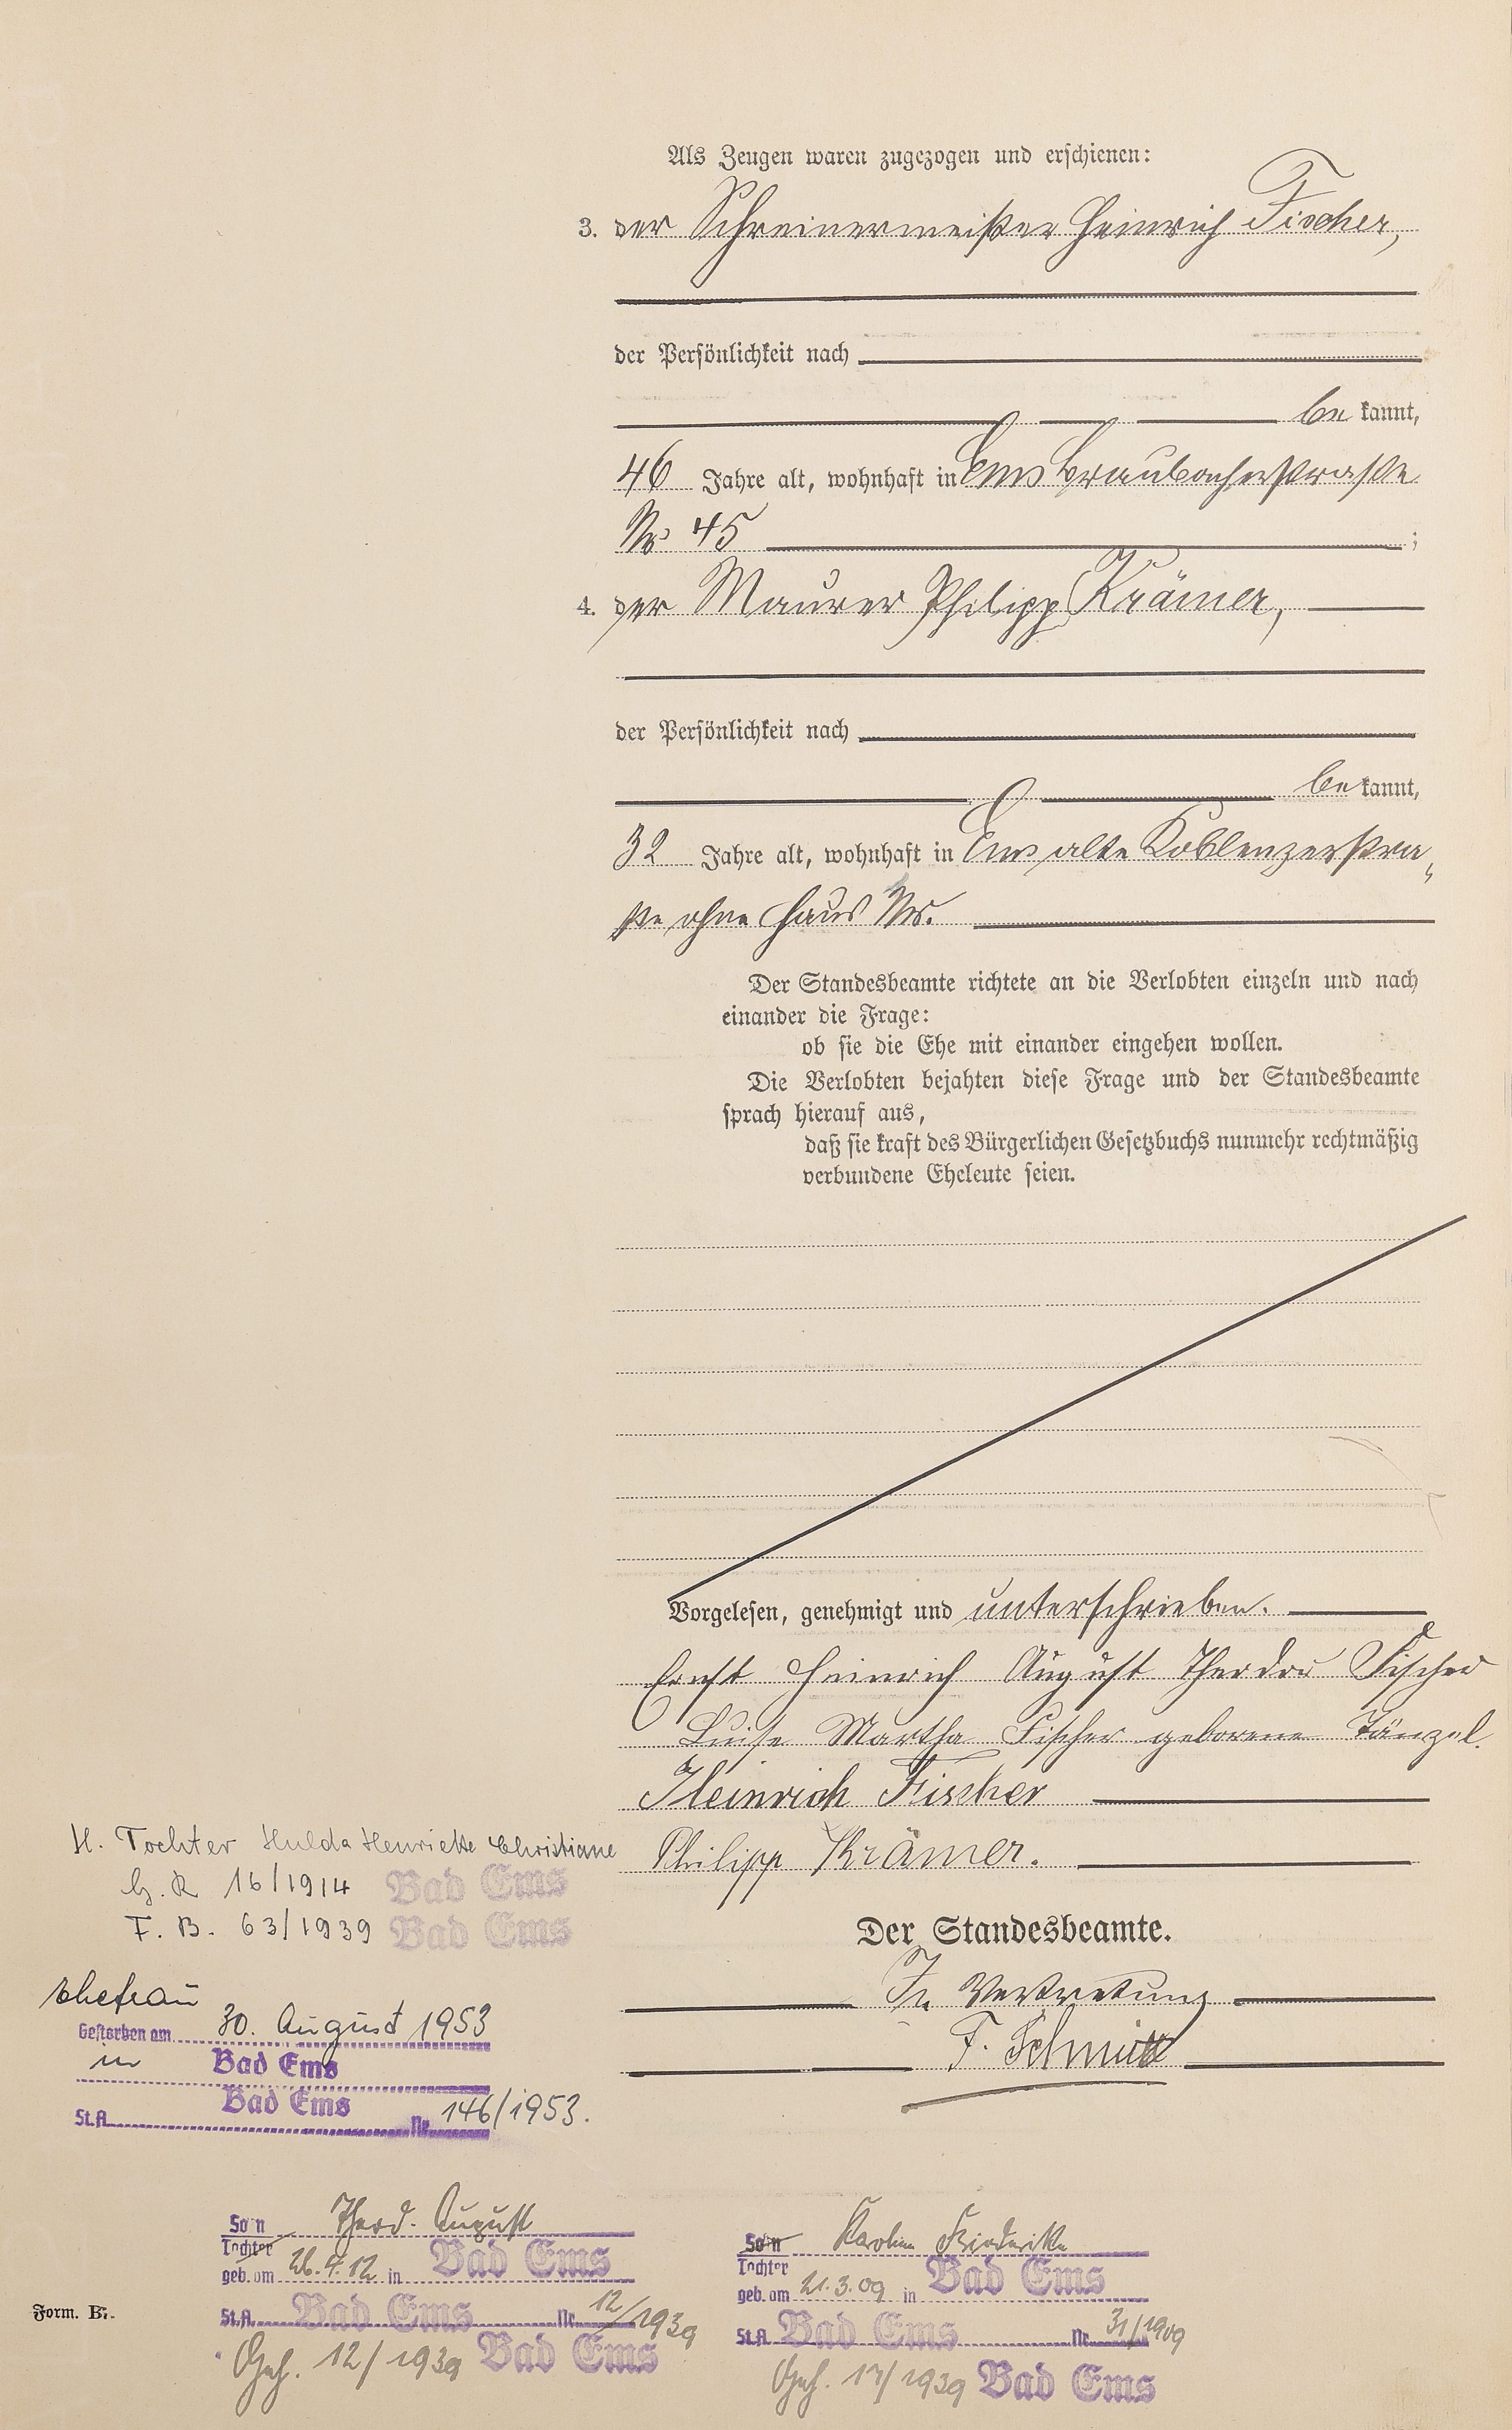 Als Zeugen waren zugezogen und erschienen:
3. der Schreinermeister Heinrich Fischer,
der Persönlichkeit nach
be kannt,
46 Jahre alt, wohnhaft in Ems Braubacherstraße
Nr. 45 ;
4. der Maurer Philipp Krämer,
der Persönlichkeit nach
be kannt,
32 Jahre alt, wohnhaft in Ems alte Koblenzerstra„
ße ohne Haus Nr.
Der Standesbeamte richtete an die Verlobten einzeln und nach
einander die Frage:
ob sie die Ehe mit einander eingehen wollen.
Die Verlobten bejahten diese Frage und der Standesbeamte
sprach hierauf aus,
daß sie kraft des Bürgerlichen Gesetzbuchs nunmehr rechtmäßig
verbundene Eheleute seien.
Vorgelesen, genehmigt und unterschrieben.
Ernst Heinrich August Theodor Fischer
Luise Martha Fischer geborene Tänzel.
Heinrich Fischer
Philipp Krämer.
Der Standesbeamte.
In Vertretung
F. Schmitt
H. Tochter Hulda Henriette Christiane
G. R 16/1914 Bad Ems
F. B. 63/1939 Bad Ems
Ehefrau
Gestorben am 30. August 1953
in Bad Ems
St.A. Bad Ems Nr. 146/1953.
Sohn Theod. August
Tochter
geb. am 26.4.12 in Bad Ems
St.A. Bad Ems Nr. 12/1939
Geh. 12/1939 Bad Ems
Sohn Karoline Friederike
Tochter
geb. am 21.3.09 in Bad Ems
St.A. Bad Ems Nr. 31/1909
Geh. 17/1939 Bad Ems
Form. B.